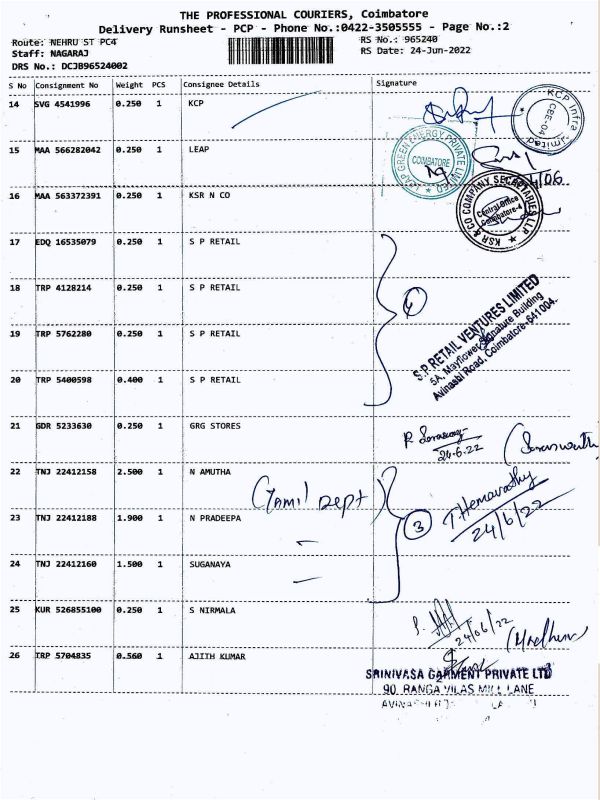 THE PROFESSIONAL COURIERS, Coimbatore
Delivery Runsheet - PCP - Phone No.:0422-3505555 - Page No.:2
Route: NEHRU ST PC4
RS No.: 965240
Staff: NAGARAJ
RS Date: 24-Jun-2022
DRS No.: DCJB96524002
S No Consignment No Weight PCS Consignee Details Signature
14 SVG 4541996 0.250 1 KCP
KCP Infra Limited
CBE-04
15 MAA 566282042 0.250 1 LEAP
GREEN ENERGY PRIVATE LIMITED
COIMBATORE
16 MAA 563372391 0.250 1 KSR N CO
KSR & CO COMPANY SECRETARIES LLP
Central Office
Coimbatore-4
17 EDQ 16535079 0.250 1 S P RETAIL
18 TRP 4128214 0.250 1 S P RETAIL
S.P RETAIL VENTURES LIMITED
5A, Mayflower Signature Building
Avinashi Road, Coimbatore-641004.
19 TRP 5762280 0.250 1 S P RETAIL
20 TRP 5400598 0.400 1 S P RETAIL
21 GDR 5233630 0.250 1 GRG STORES
24-6-22
22 TNJ 22412158 2.500 1 N AMUTHA
(Tamil Dept)
23 TNJ 22412188 1.900 1 N PRADEEPA
3
T Hemavathy
24/6/22
24 TNJ 22412160 1.500 1 SUGANAYA
25 KUR 526855100 0.250 1 S NIRMALA
24/06/22
26 TRP 5704835 0.560 1 AJITH KUMAR
SRINIVASA GARMENT PRIVATE LTD
90, RANGA VILAS MILL LANE